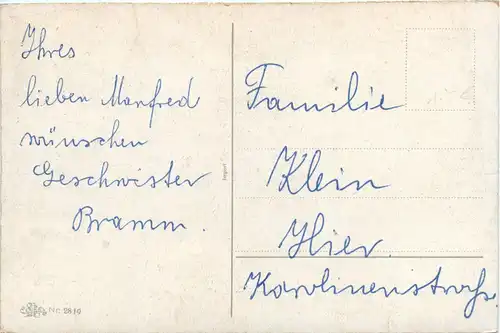 Ihres
lieben Manfred
wünschen
Geschwister
Bramm.
Familie
Klein
Hier.
Karolinenstraße.
Import
Nr. 2810